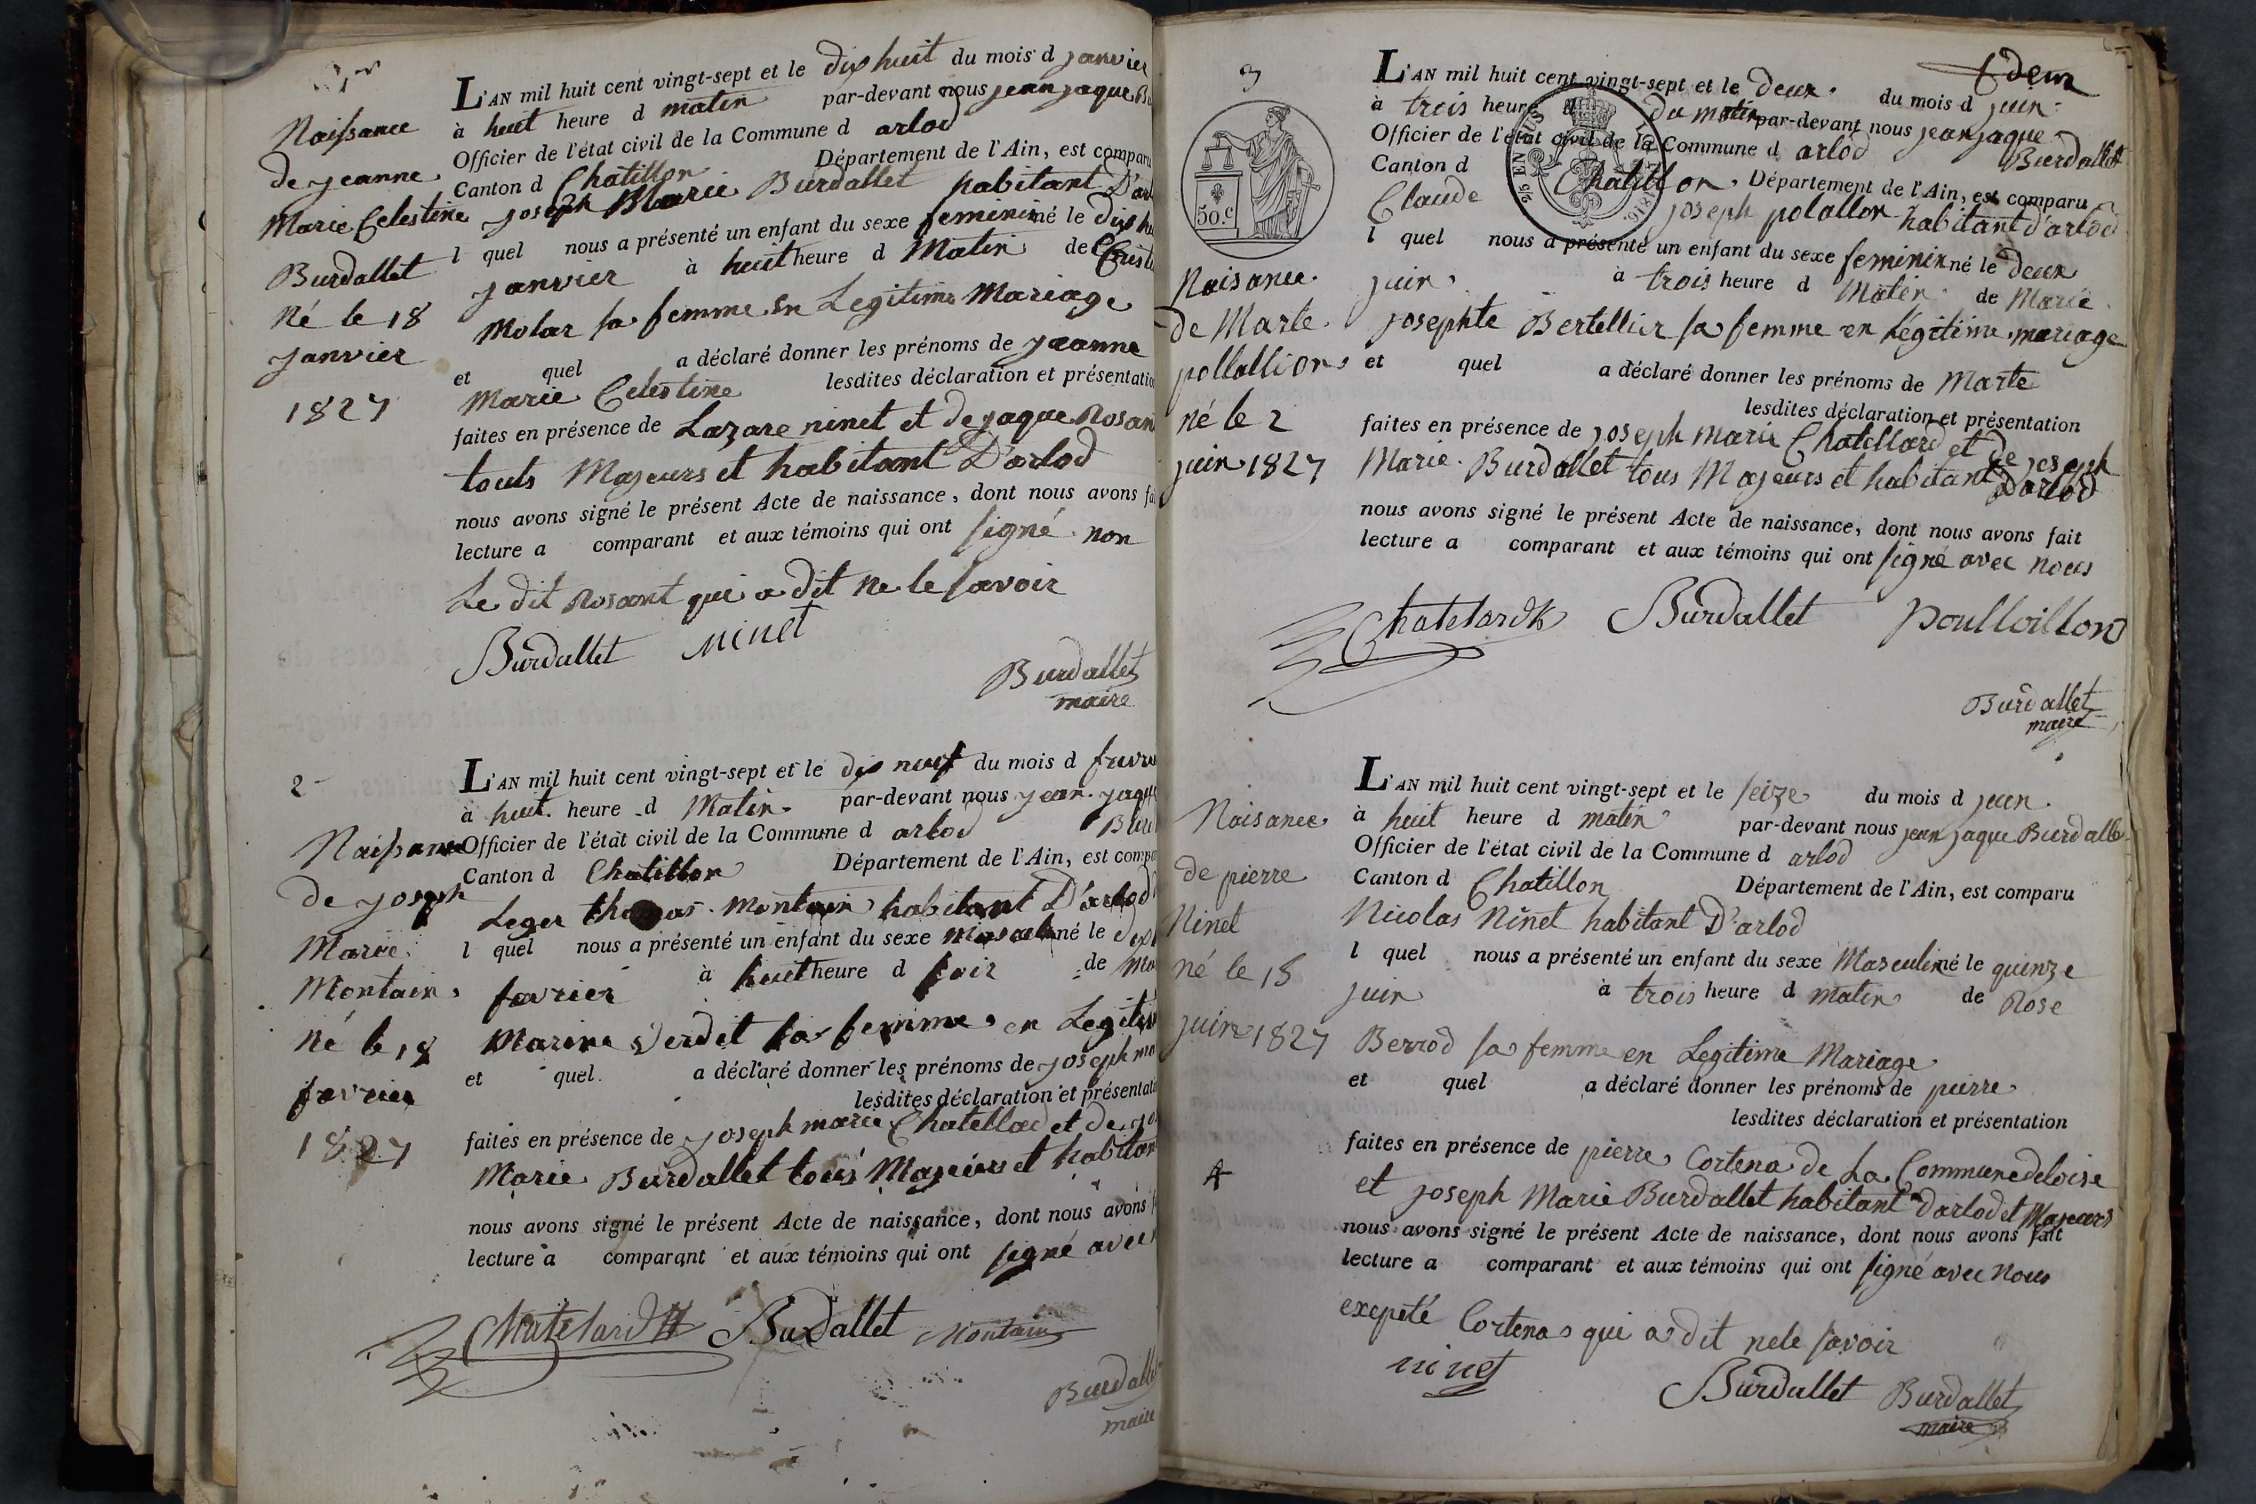 1er
Naissance
de jeanne
Marie Celestine
Burdallet
né le 18
janvier
1827
L'AN mil huit cent vingt-sept et le dix huit du mois d janvier
à huit heure d matin par-devant nous jean jaque Bu
Officier de l'état civil de la Commune d arlod
Canton d Chatillon Département de l'Ain, est comparu
joseph Marie Burdallet habitant D'arl
l quel nous a présenté un enfant du sexe feminin né le dix hu
janvier à huit heure d Matin de
Molar sa femme en Legitime Mariage
et quel a déclaré donner les prénoms de jeanne
Marie Celestine lesdites déclaration et présentation
faites en présence de Lazare ninet et de jaque Rosan
touts Majeurs et habitant D'arlod
nous avons signé le présent Acte de naissance, dont nous avons fa
lecture a comparant et aux témoins qui ont signé non
Le dit Rosant qui a dit ne le savoir
Burdallet ninet
Burdallet
maire
2
Naissance
de joseph
Marie
Montain
né le 18
fevrier
1827
L'AN mil huit cent vingt-sept et le dix neuf du mois d fevr
à huit heure d Matin par-devant nous jean jaque
Officier de l'état civil de la Commune d arlod Burd
Canton d Chatillon Département de l'Ain, est compa
Leger thomas montain habitant D'arlod
l quel nous a présenté un enfant du sexe masculin né le dix
fevrier à huit heure d soir de Ma
Marine Verdet sa femme en Legitim
et quel a déclaré donner les prénoms de joseph ma
lesdites déclaration et présentati
faites en présence de joseph marie Chatellad et de jo
Marie Burdallet tous Majeurs et habitan
nous avons signé le présent Acte de naissance, dont nous avons f
lecture a comparant et aux témoins qui ont signé avec
Chatelard Burdallet Montain
Burdallet
maire
3
50.c
Naisance
de Marte
pollallion
né le 2
juin 1827
Idem
L'AN mil huit cent vingt-sept et le deux du mois d juin
à trois heure d du matin par-devant nous jean jaque
Officier de l'état civil de la Commune d arlod Burdallet
Canton d Chatillon, Département de l'Ain, est comparu
Claude joseph polallon habitant d'arlod
l quel nous a présenté un enfant du sexe feminin né le deux
juin à trois heure d Maten de Marie
josephte Bertellier sa femme en Légitime mariage
et quel a déclaré donner les prénoms de Marte
lesdites déclaration et présentation
faites en présence de joseph marie Chatellard et de joseph
Marie Burdallet tous Majeurs et habitant D'arlod
nous avons signé le présent Acte de naissance, dont nous avons fait
lecture a comparant et aux témoins qui ont signé avec nous
Chatelard Burdallet Poulloillon
Burdallet
maire
Naisance
de pierre
Ninet
né le 15
juin 1827
4
L'AN mil huit cent vingt-sept et le seize du mois d juin
à huit heure d matin par-devant nous jean jaque Burdallet
Officier de l'état civil de la Commune d arlod
Canton d Chatillon Département de l'Ain, est comparu
Nicolas Ninet habitant D'arlod
l quel nous a présenté un enfant du sexe Masculin né le quinze
juin à trois heure d matin de Rose
Berrod sa femme en Legitime Mariage
et quel a déclaré donner les prénoms de pierre
lesdites déclaration et présentation
faites en présence de pierre Cortena de La Commune deloise
et joseph Marie Burdallet habitant D'arlod et Majeurs
nous avons signé le présent Acte de naissance, dont nous avons fait
lecture a comparant et aux témoins qui ont signé avec Nous
exepeté Cortena qui a dit nele savoir
ninet
Burdallet Burdallet
maire